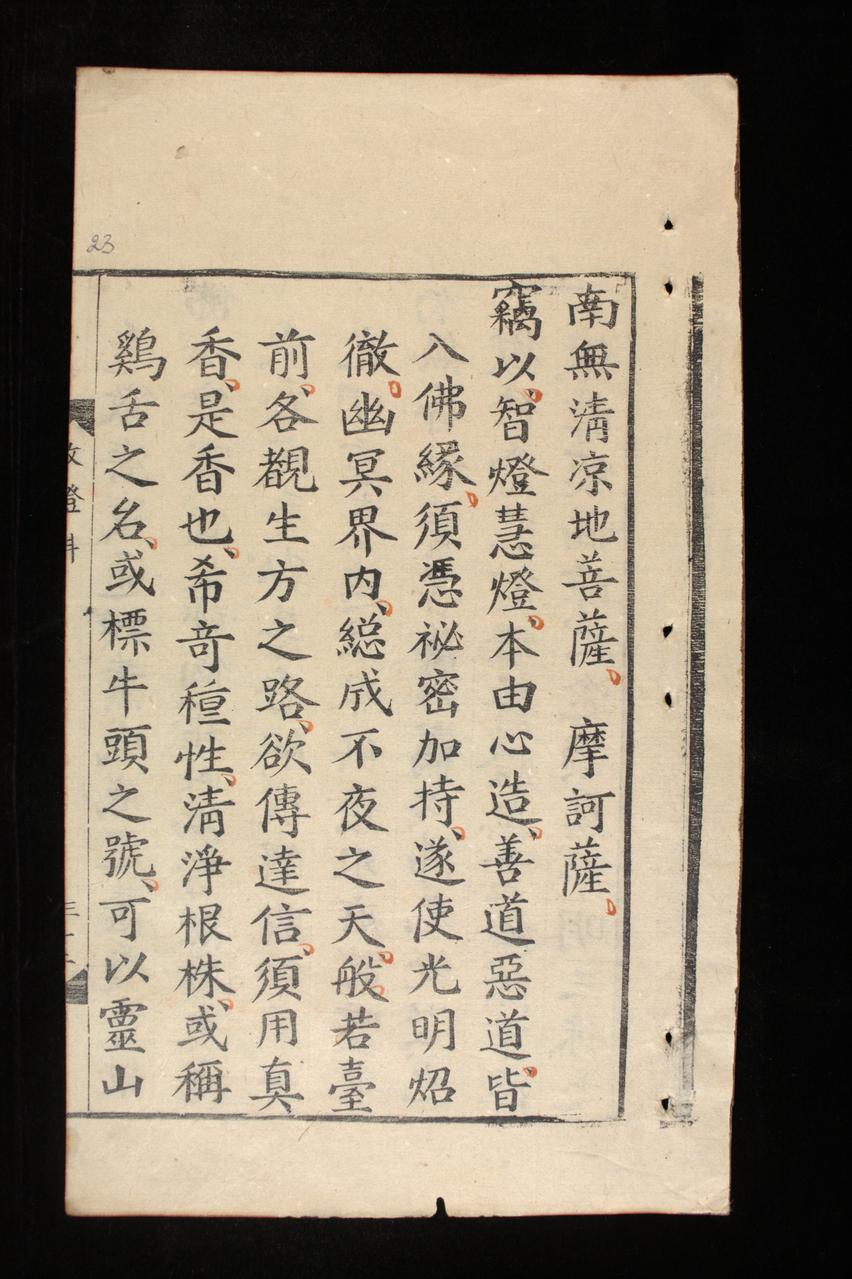 南無清凉地菩薩、摩訶薩、
竊以、智燈慧燈、本由心造、善道惡道、皆
入佛緣、須憑祕密加持、遂使光明炤
徹、幽冥界内、縂成不夜之天、般若臺
前、各覩生方之路、欲傳達信、須用真
香、是香也、希竒種性、清淨根株、或稱
鷄舌之名、或標牛頭之號、可以靈山
23